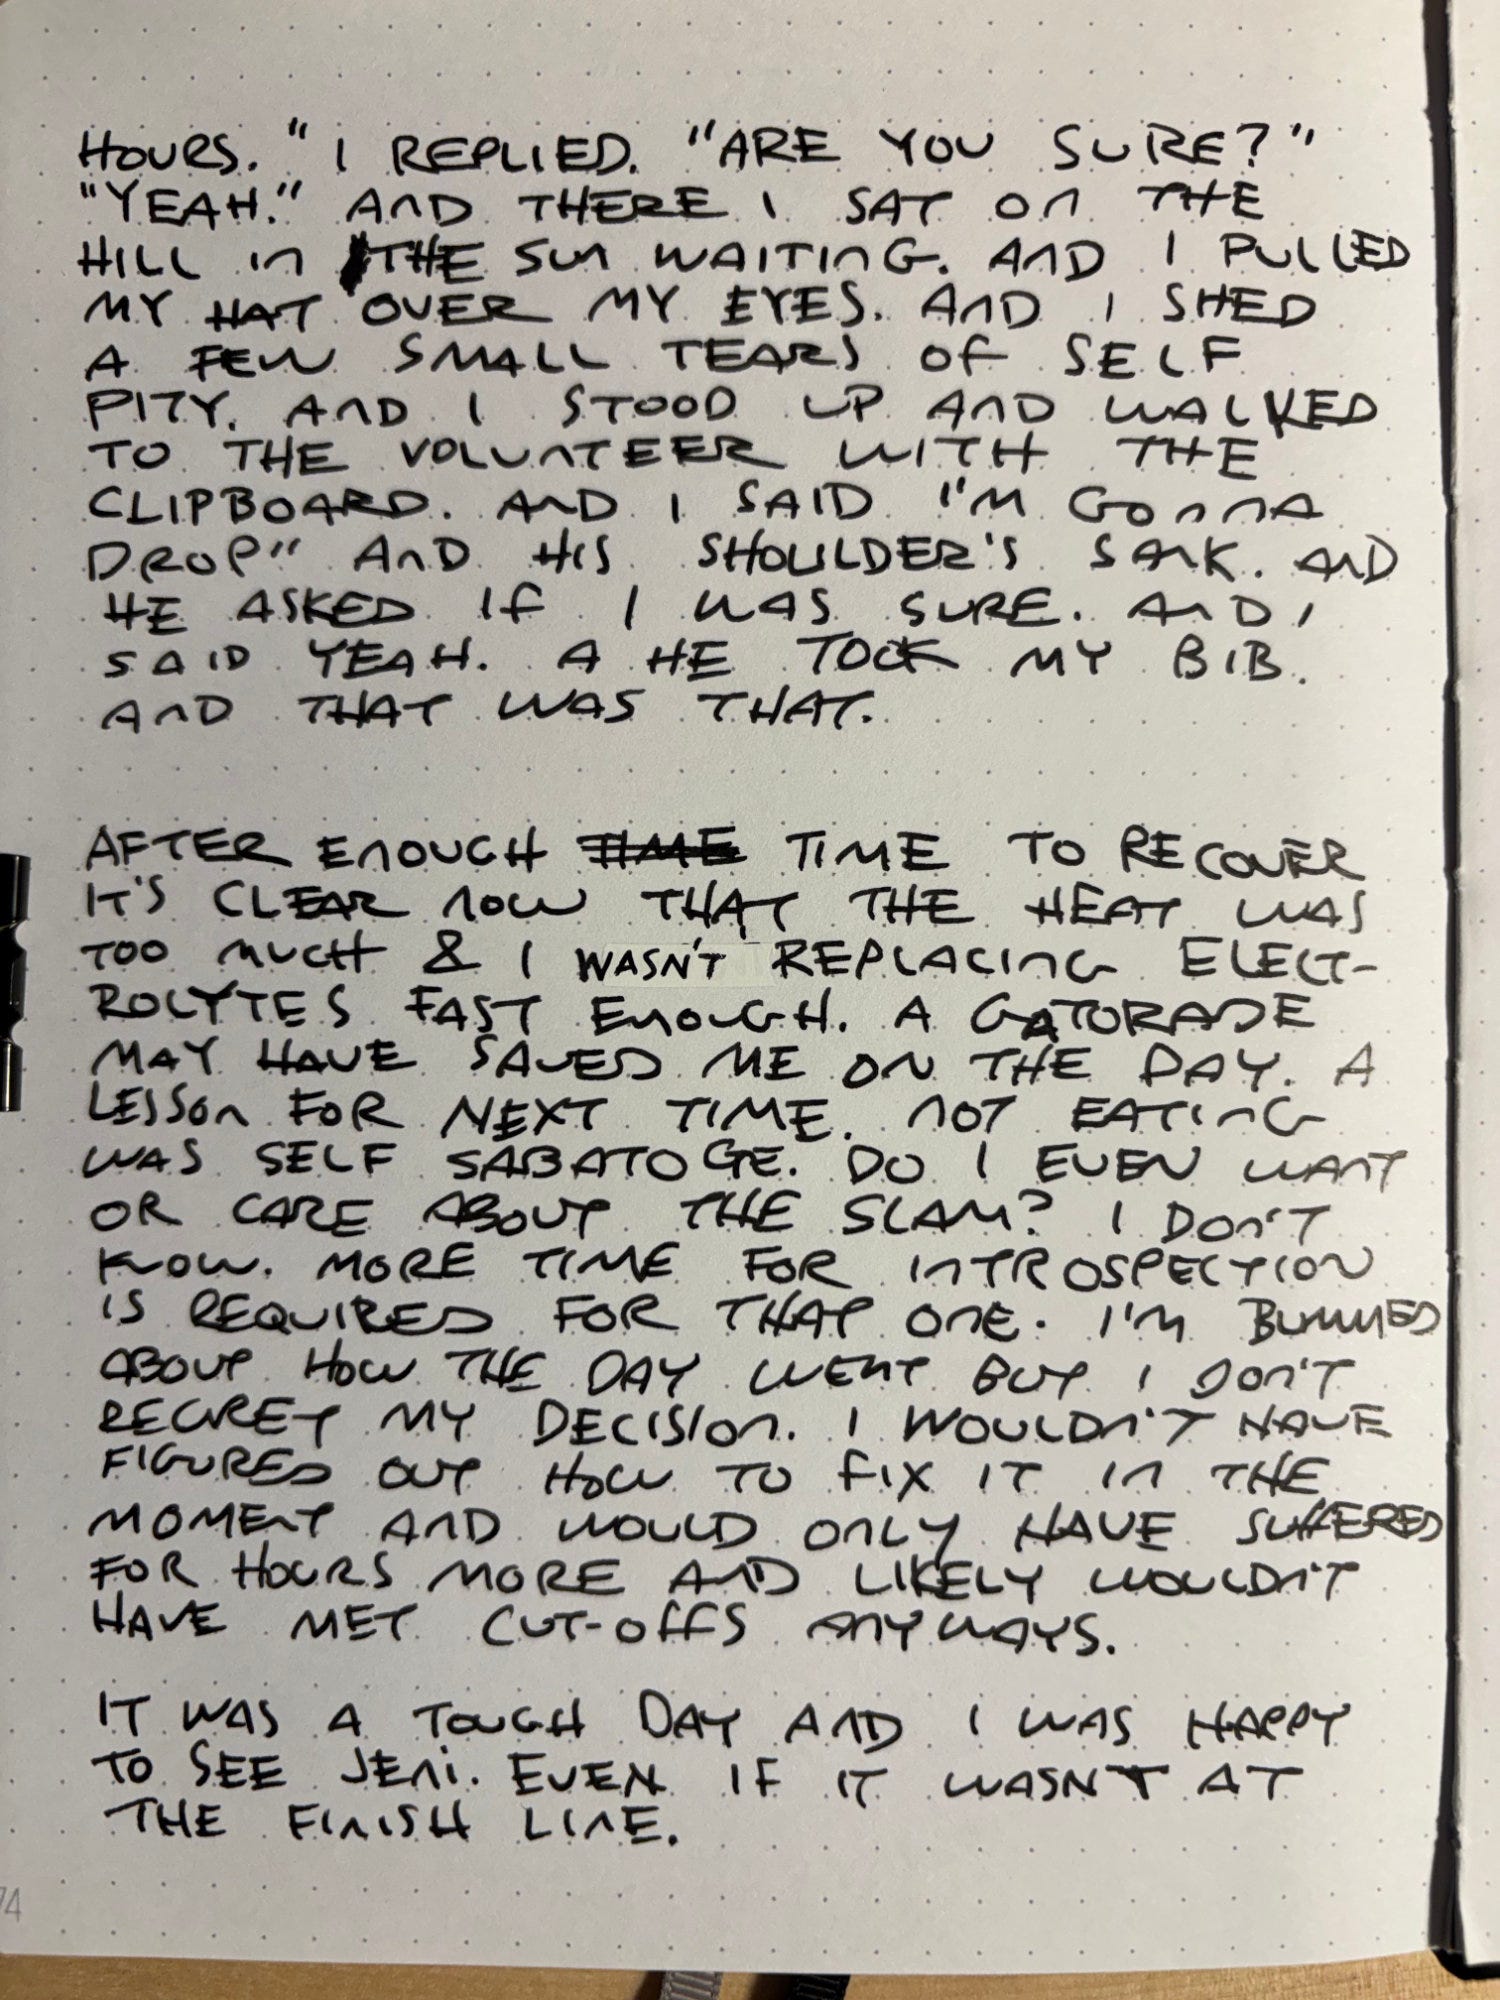 HOURS." I REPLIED. "ARE YOU SURE?"
"YEAH." AND THERE I SAT ON THE
HILL IN THE SUN WAITING. AND I PULLED
MY HAT OVER MY EYES. AND I SHED
A FEW SMALL TEARS OF SELF
PITY. AND I STOOD UP AND WALKED
TO THE VOLUNTEER WITH THE
CLIPBOARD. AND I SAID I'M GONNA
DROP" AND HIS SHOULDER'S SANK. AND
HE ASKED IF I WAS SURE. AND I
SAID YEAH. A HE TOOK MY BIB.
AND THAT WAS THAT.
AFTER ENOUGH TIME TIME TO RECOVER
IT'S CLEAR NOW THAT THE HEAT WAS
TOO MUCH & I WASN'T REPLACING ELECT-
ROLYTES FAST ENOUGH. A GATORADE
MAY HAVE SAVED ME ON THE DAY. A
LESSON FOR NEXT TIME. NOT EATING
WAS SELF SABATOGE. DO I EVEN WANT
OR CARE ABOUT THE SLAM? I DON'T
KNOW. MORE TIME FOR INTROSPECTION
IS REQUIRED FOR THAT ONE. I'M BUMMED
ABOUT HOW THE DAY WENT BUT I DON'T
REGRET MY DECISION. I WOULDN'T HAVE
FIGURED OUT HOW TO FIX IT IN THE
MOMENT AND WOULD ONLY HAVE SUFFERED
FOR HOURS MORE AND LIKELY WOULDN'T
HAVE MET CUT-OFFS ANYWAYS.
IT WAS A TOUGH DAY AND I WAS HAPPY
TO SEE JENI. EVEN IF IT WASN'T AT
THE FINISH LINE.
74